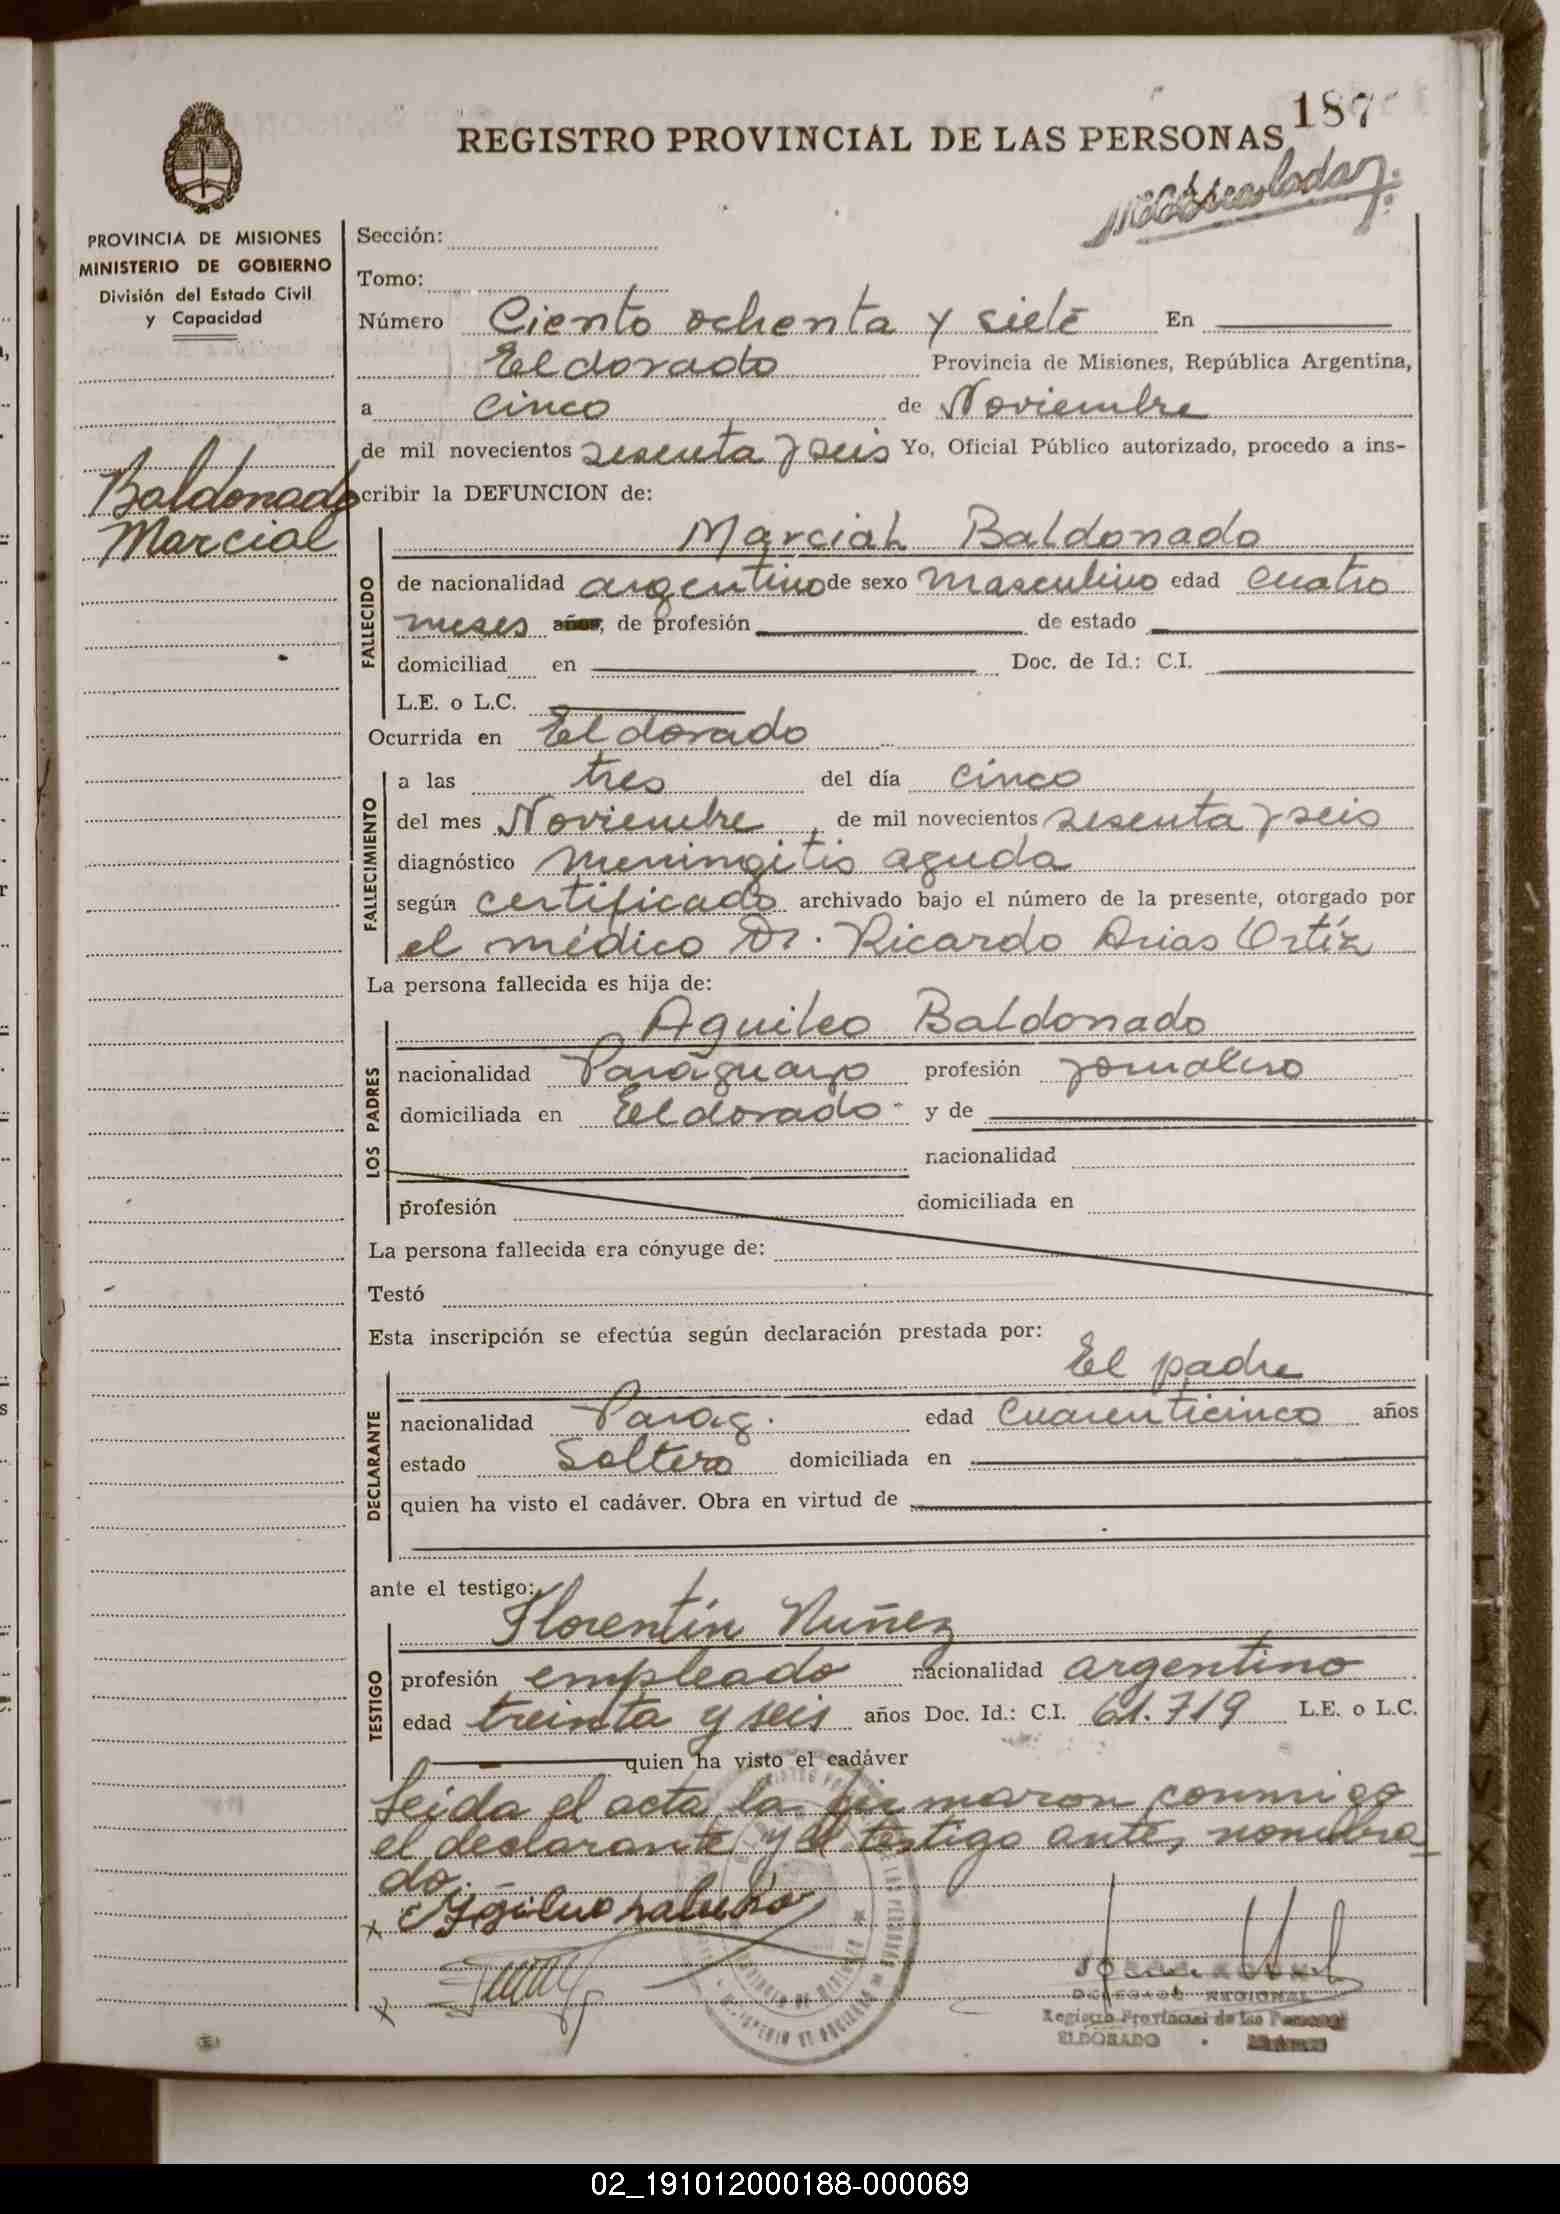 187
REGISTRO PROVINCIAL DE LAS PERSONAS
PROVINCIA DE MISIONES
MINISTERIO DE GOBIERNO
División del Estado Civil
y Capacidad
Baldonado
Marcial
Sección:
Tomo:
Número Ciento ochenta y siete En
Eldorado Provincia de Misiones, República Argentina,
a cinco de Noviembre
de mil novecientos sesenta y seis Yo, Oficial Público autorizado, procedo a ins-
cribir la DEFUNCION de:
FALLECIDO
Marcial Baldonado
de nacionalidad argentino de sexo masculino edad cuatro
meses años, de profesión de estado
domiciliad en Doc. de Id.: C.I.
L.E. o L.C.
Ocurrida en Eldorado
FALLECIMIENTO
a las tres del día cinco
del mes Noviembre, de mil novecientos sesenta y seis
diagnóstico meningitis aguda
según certificado archivado bajo el número de la presente, otorgado por
el médico Dr. Ricardo Arias Ortíz
La persona fallecida es hija de:
LOS PADRES
Aguileo Baldonado
nacionalidad Paraguayo profesión jornalero
domiciliada en Eldorado- y de
nacionalidad
profesión domiciliada en
La persona fallecida era cónyuge de:
Testó
Esta inscripción se efectúa según declaración prestada por:
DECLARANTE
El padre
nacionalidad Parag. edad Cuarenticinco años
estado Soltero domiciliada en
quien ha visto el cadáver. Obra en virtud de
ante el testigo:
TESTIGO
Florentín Nuñez
profesión empleado nacionalidad argentino
edad treinta y seis años Doc. Id.: C.I. 61.719 L.E. o L.C.
quien ha visto el cadáver
Leida el acta, la firmaron conmigo
el declarante y el testigo antes nombra-
do.
DELEGADO REGIONAL
Registro Provincial de las Personas
ELDORADO
02_191012000188-000069